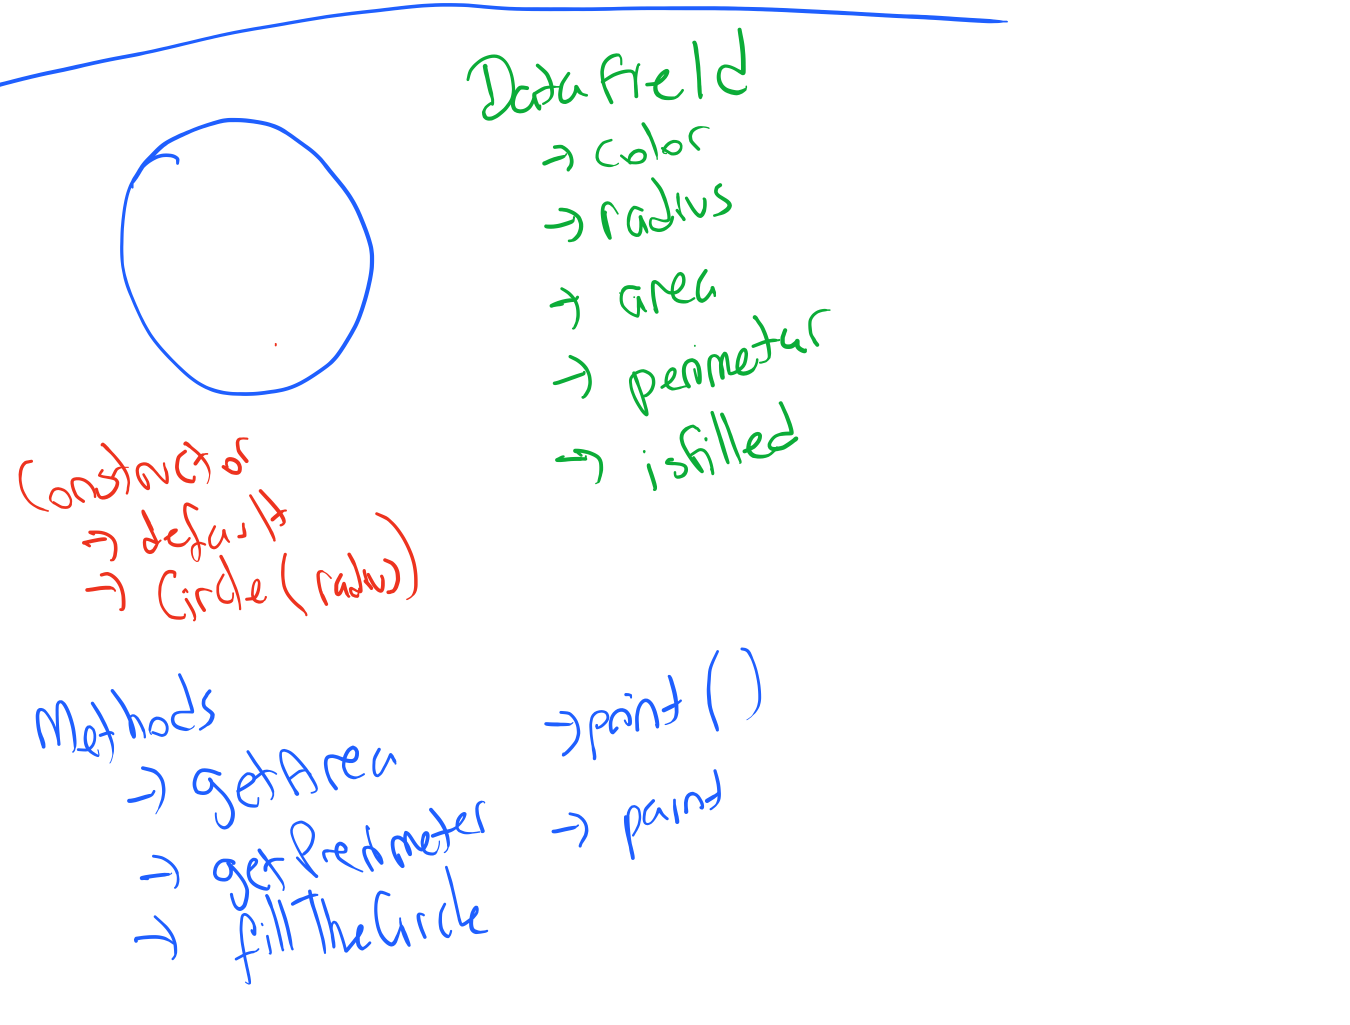 Data field
→ color
→ radius
→ area
→ perimeter
→ isfilled
Constructor
→ default
→ Circle (radius)
Methods
→ getArea
→ getPrerimeter
→ fillTheCircle
→ print ()
→ paint